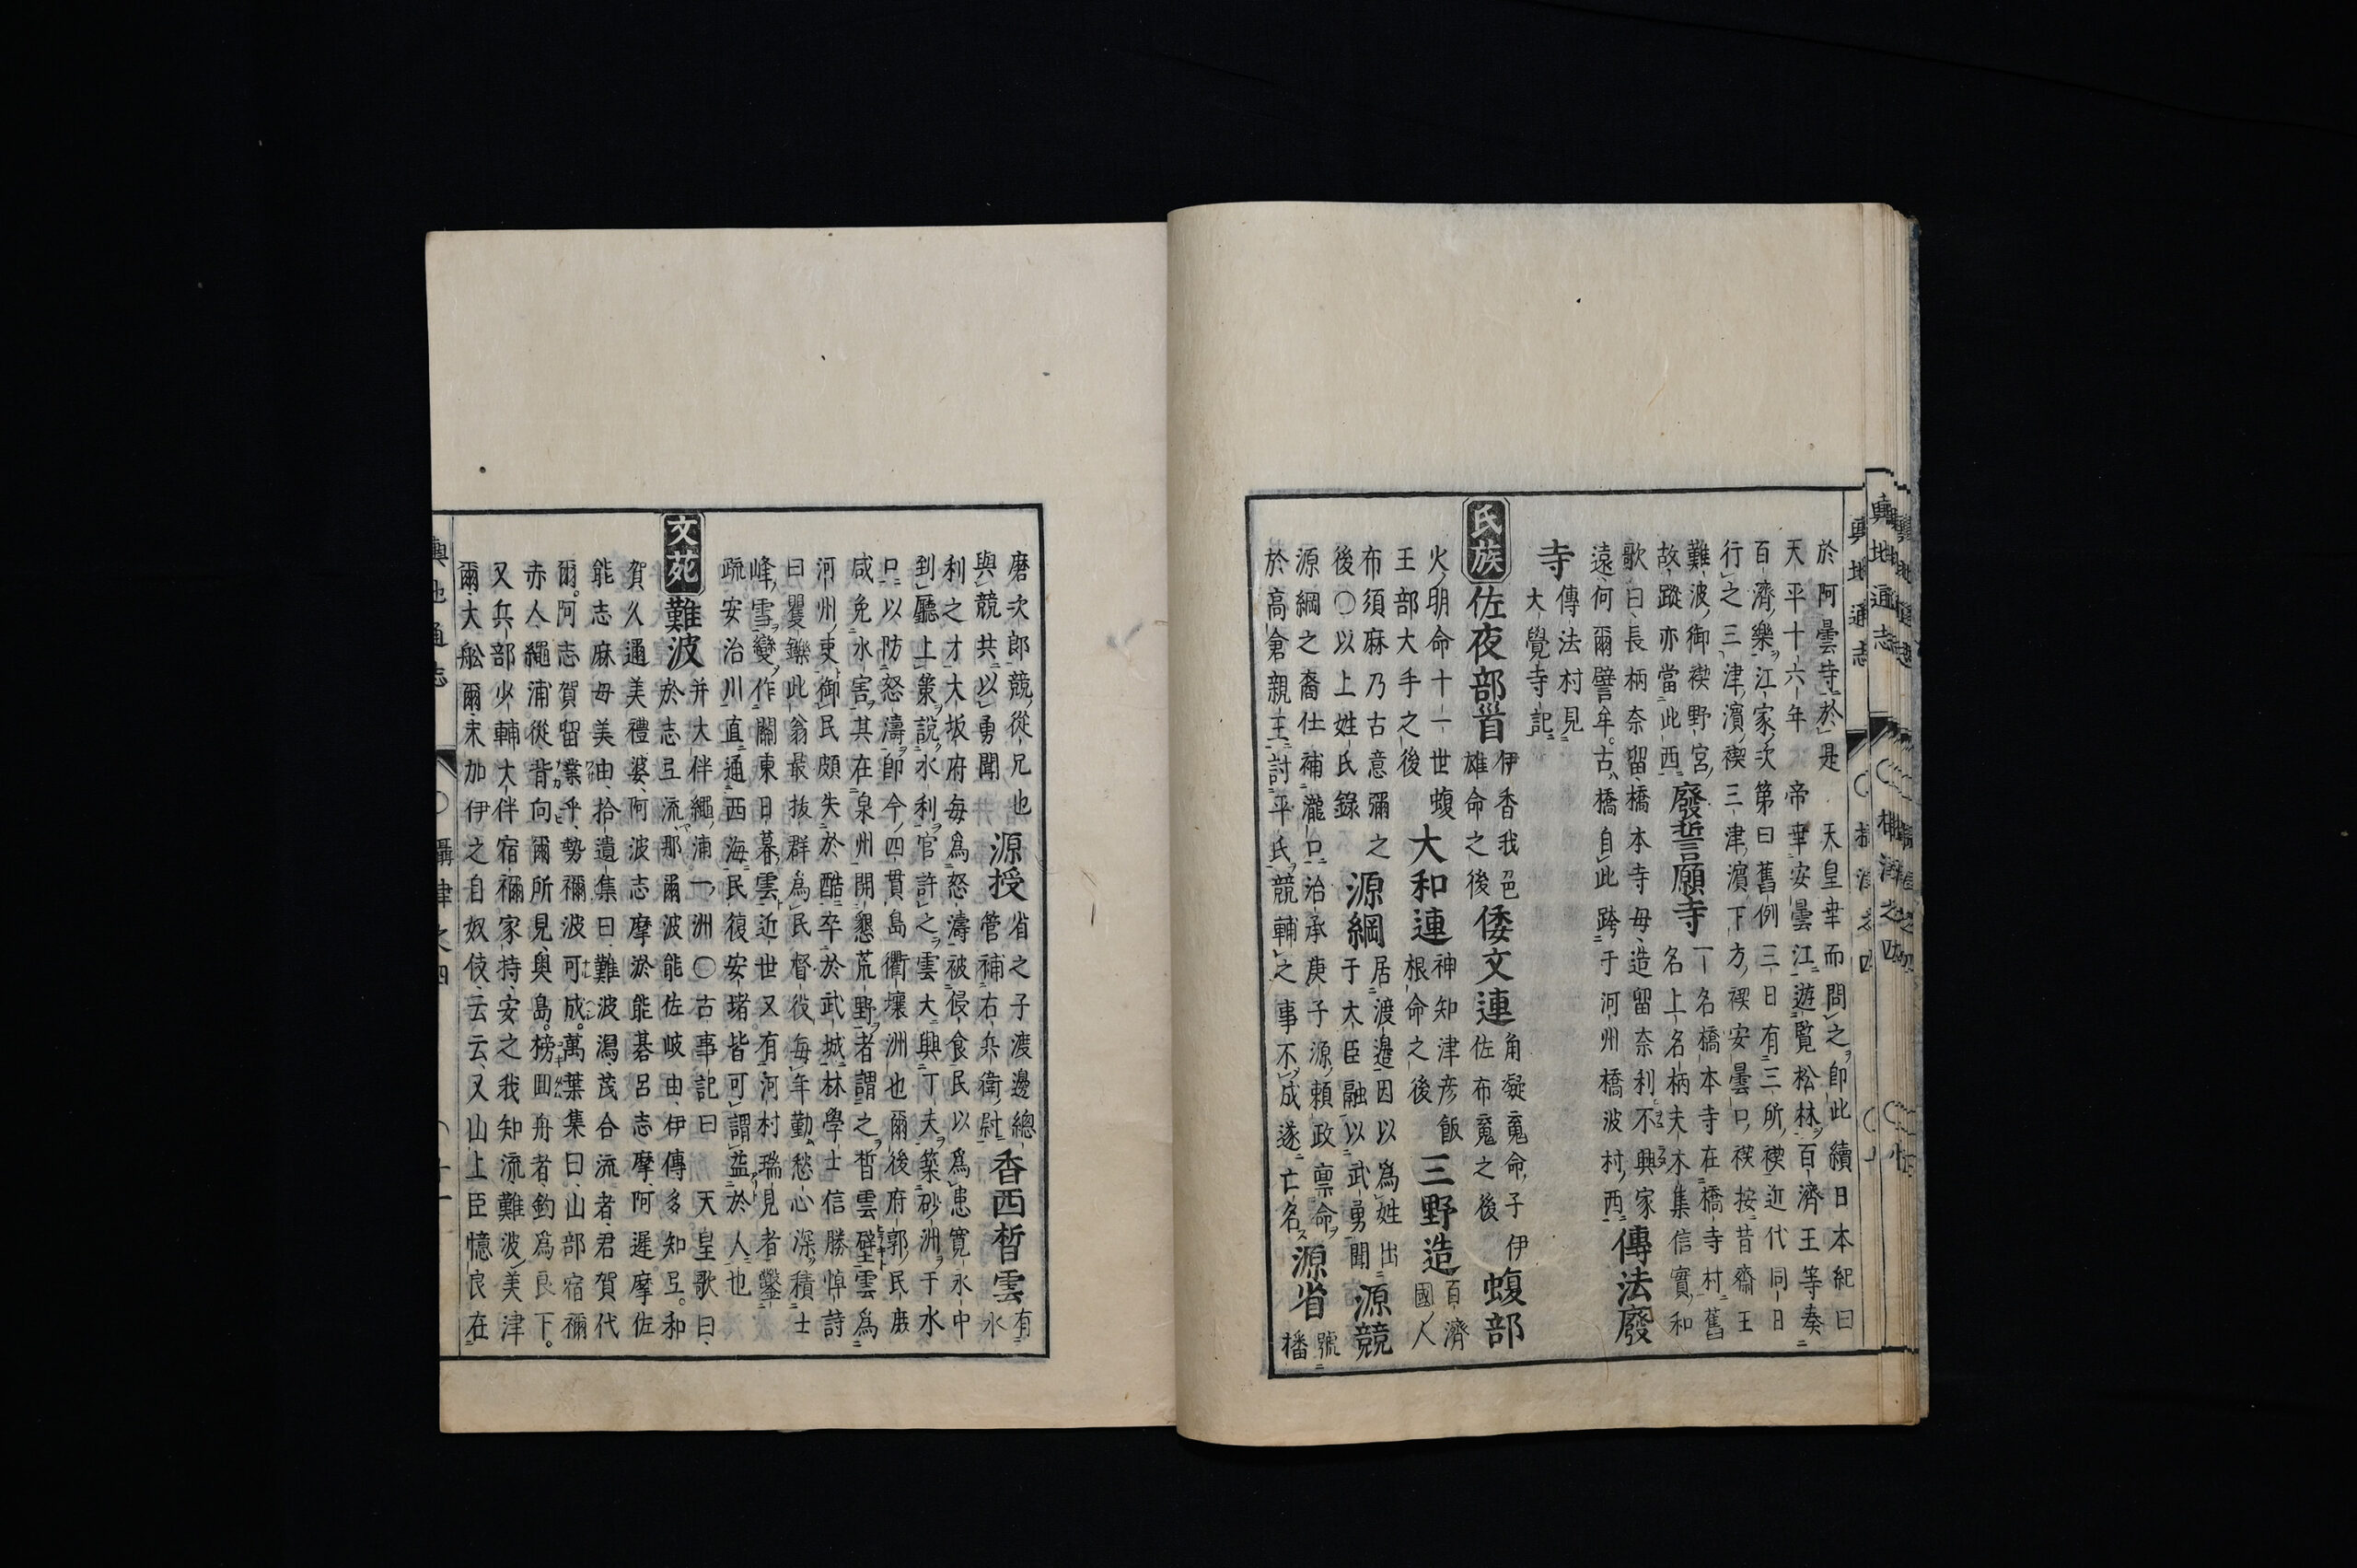 於阿曇寺於是　天皇幸而問之即此續日本紀曰
天平十六年　帝幸安曇江遊覧松林百濟王等奏
百濟樂江家次第曰舊例三日有三所禊近代同日
行之三津濱禊三津濱下方禊安曇口禊按昔齋王
難波御禊野宮
故蹤亦當此西
廢誓願寺
一名橋本寺在橋寺村舊
名上名柄夫木集信實和
歌曰長柄奈留橋本寺毋造留奈利不興家
遠何爾譬牟古橋自此跨于河州橋波村西
傳法廢
寺
傳法村見
大覺寺記
氏族
佐夜部首
伊香我色
雄命之後
倭文連
角凝䰟命子伊
佐布䰟之後
蝮部
火明命十一世蝮
王部大手之後
大和連
神知津彦飯
根命之後
三野造
百濟
國人
布須麻乃古意彌之
後〇以上姓氏錄
源綱
居渡邉因以爲姓出
于大臣融以武勇聞
源競
源綱之裔仕補瀧口治承庚子源頼政禀命
於高倉親王討平氏競輔之事不成遂亡名
源省
號
播
磨次郎競從兄也
與競共以勇聞
源授
省之子渡邉總
管補右兵衛尉
香西晳雲
有
水
利之才大坂府毎爲怒濤被侵食民以爲患寛永中
到廳上策說水利官許之雲大興丁夫築砂洲于水
口以防怒濤即今四貫島衢壤洲也爾後府郭民庶
咸免水害其在泉州開懇荒野者謂之晳雲壁雲爲
河州吏御民頗失於酷卒於武城林學士信勝悼詩
曰矍鑠此翁最抜群爲民督役毎年勤愁心深積士
峰雪變作關東日暮雲近世又有河村瑞見者鑿
疏安治川直通西海民復安堵皆可謂益於人也
文苑
難波
并大伴繩浦一洲〇古事記曰　天皇歌曰
於志弖流那爾波能佐岐由伊傳多知弖和
賀久迩美禮婆阿波志摩淤能碁呂志摩阿遲摩佐
能志麻毋美由拾遺集曰難波潟茂合流者君賀代
爾阿志賀留業乎勢彌波可成萬葉集曰山部宿禰
赤人繩浦從背向爾所見奥島榜回舟者釣爲良下
又兵部少輔大伴宿禰家持安之我知流難波美津
爾大舩爾末加伊之自奴伎云云又山上臣憶良在
輿地通志　〇攝津之四　〇十一